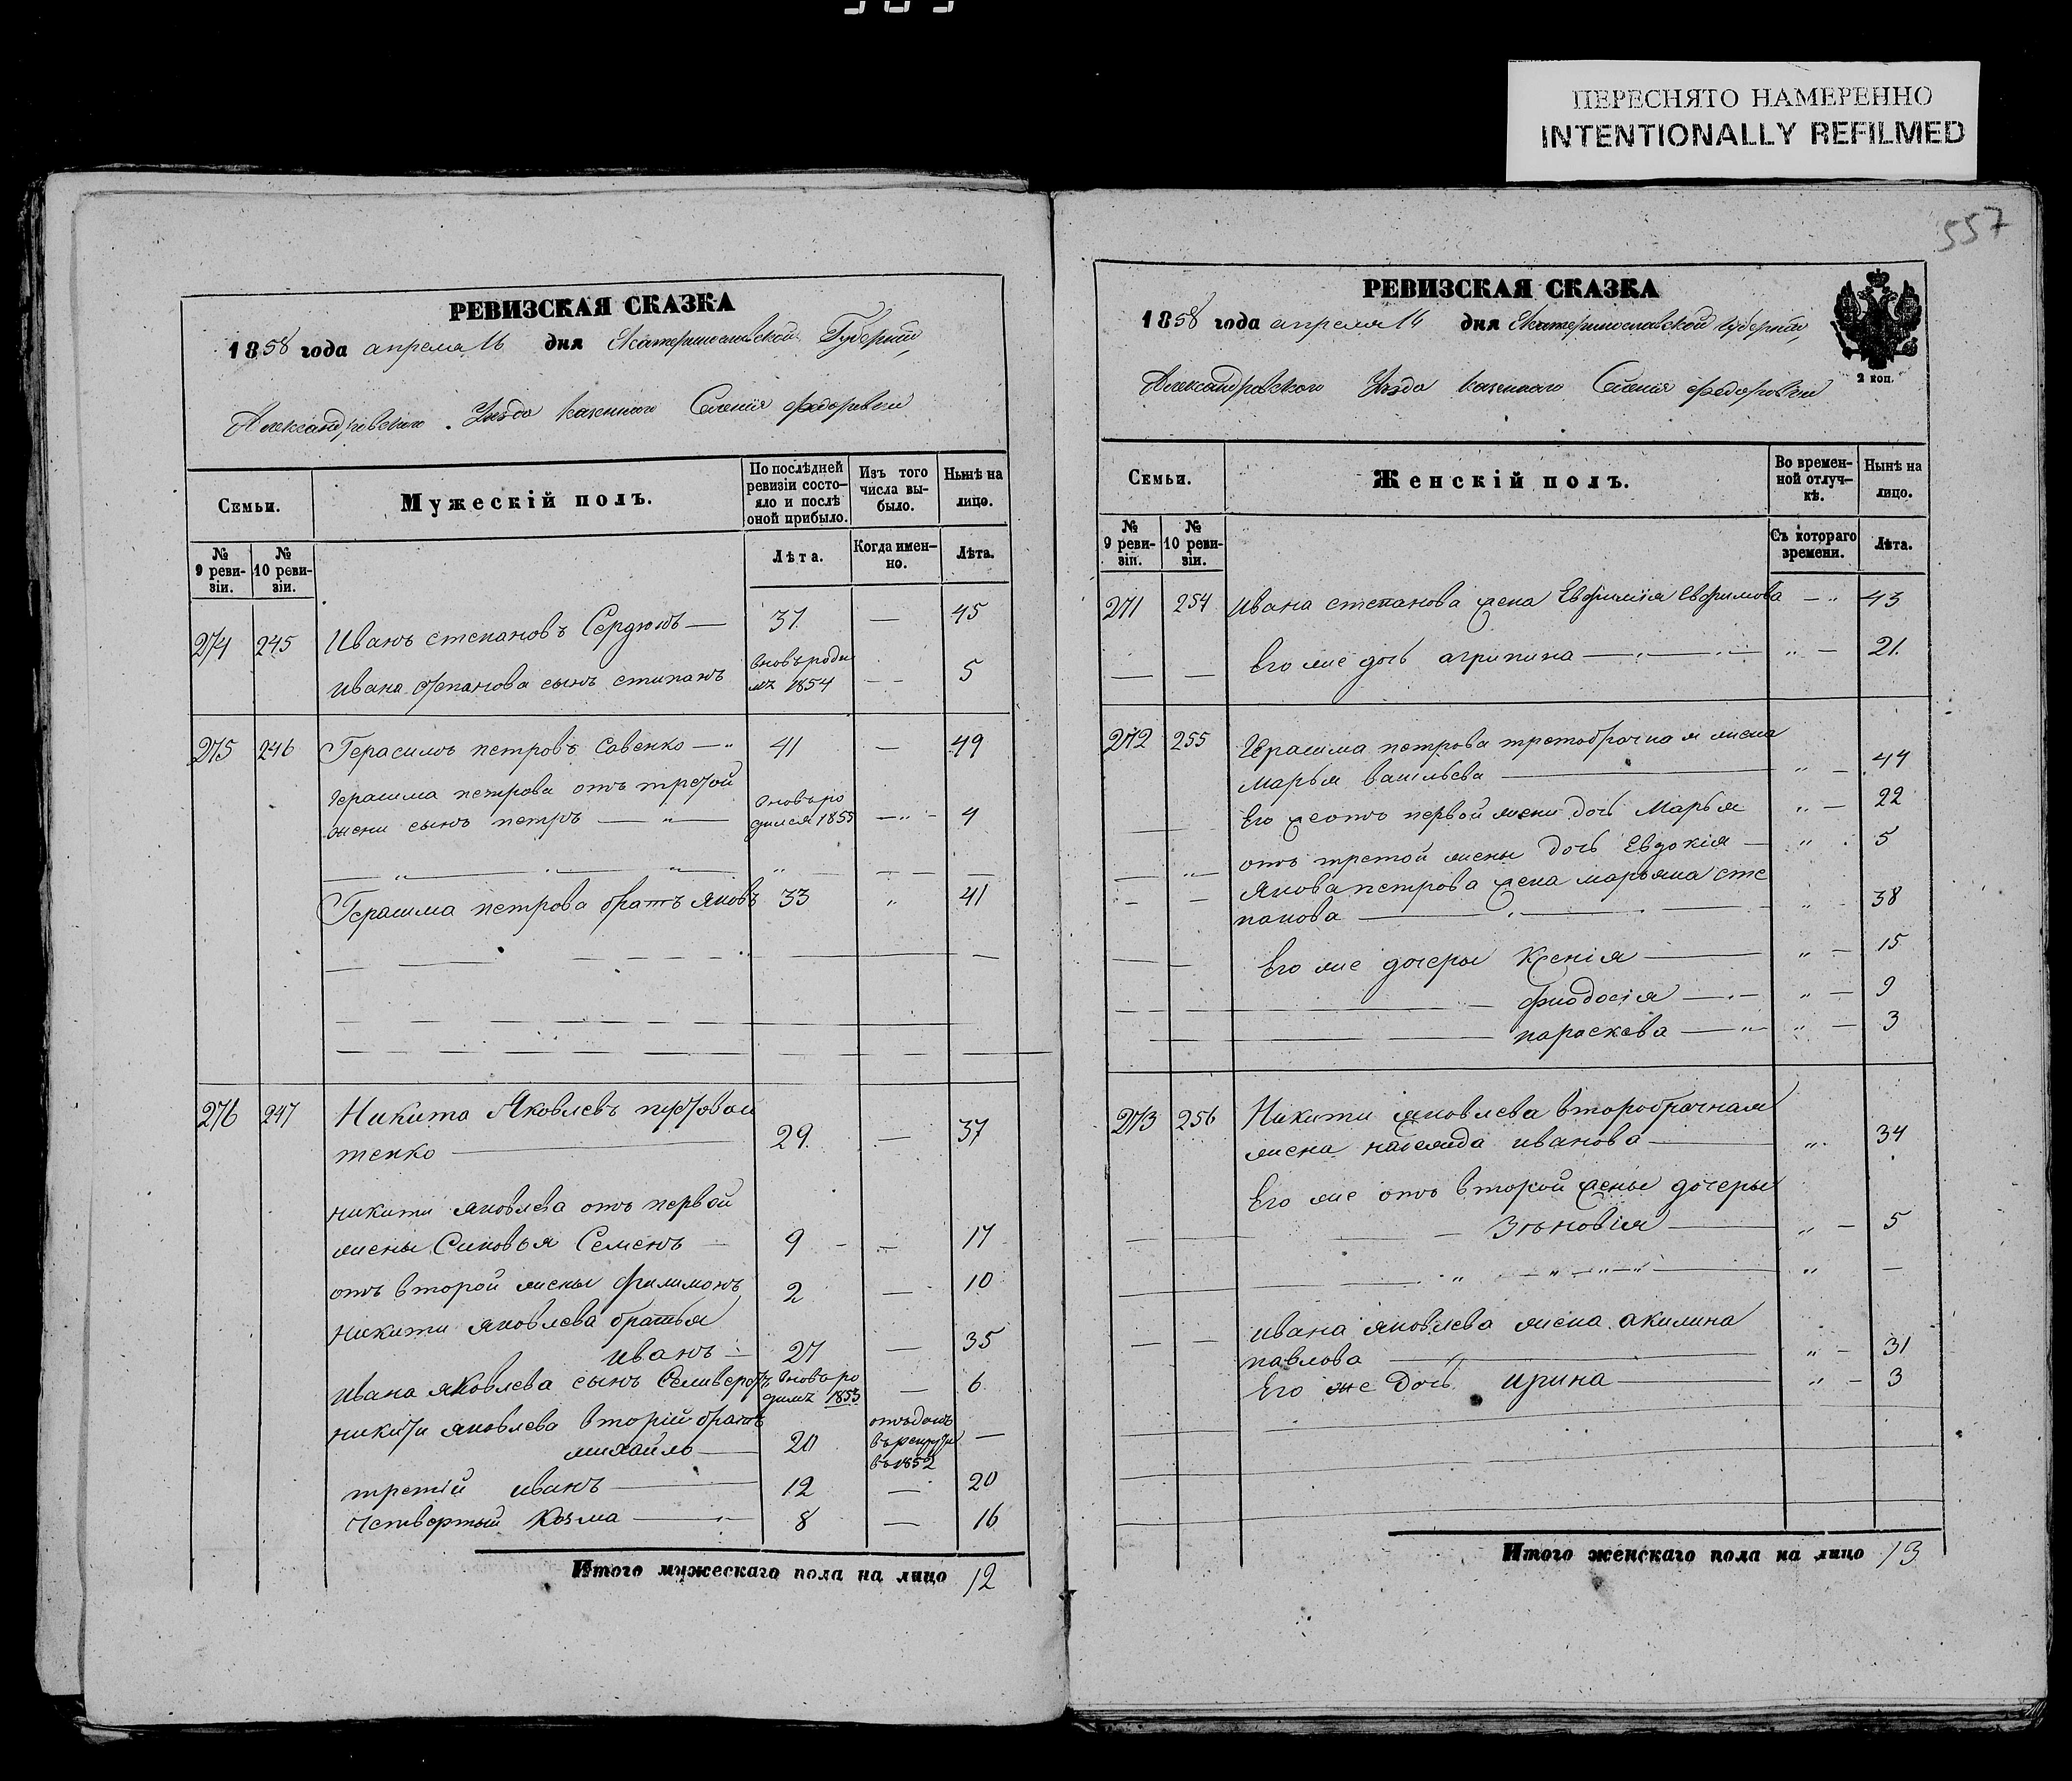 ПЕРЕСНЯТО НАМЕРЕННО
INTENTIONALLY REFILMED
557
РЕВИЗСКАЯ СКАЗКА
1858 года апреля 16 дня Екатеринославской Губерніи,
Александровского Уезда казенного Селенія Федоровки
Семьи.
Мужескій полъ.
По послѣдней ревизіи состо-
яло и послѣ
оной прибыло.
Изъ того
числа вы-
было.
Нынѣ на
лицо.
№
9 реви-
зіи.
№
10 реви-
зіи.
Лѣта.
Когда имен-
но.
Лѣта.
274 245 Иванъ степановъ Сердюкъ — 37 — 45
Ивана степанова сынъ степанъ вновь роди
лся 1854 — 5
275 246 Герасимъ петровъ Савенко — 41 — 49
Герасима петрова отъ третой
жени сынъ петръ — вновь ро
дился 1855 — 4
Герасима петрова братъ яковъ 33 „ 41
276 247 Никита Яковлевъ
тенко — 29 — 37
никити яковлева отъ первой
жены Синовья Семенъ — 9 — 17
отъ второй жены филимонъ 2 — 10
никити яковлева братья
иванъ — 27 — 35
ивана яковлева сынъ Селиверстъ вновь ро
дился 1853 — 6
никити яковлева вторій братъ
михайло — 20 отъданъ
въ рекрути
въ 1852 —
третій иванъ — 12 — 20
Четвертый Козма — 8 — 16
Итого мужескаго пола на лицо 12
РЕВИЗСКАЯ СКАЗКА
1858 года апреля 16 дня Екатеринославской губерніи,
Александровского Уезда казенного Селенія федоровки
2 коп.
Семьи.
Женскій полъ.
Во времен-
ной отлуч-
кѣ.
Нынѣ на
лицо.
№
9 реви-
зіи.
№
10 реви-
зіи.
Съ котораго
времени.
Лѣта.
271 254 Ивана степанова жена Евфимія Евфимова — 43
Его же дочь агрипина — „ — 21
272 255 Герасима петрова третобрачная жена
марья васильева — „ — 44
Его же отъ первой жени дочь Марья „ — 22
отъ третой жены дочь Евдокія — „ 5
Якова петрова жена марьяна сте
панова — „ 38
Его же дочеры Ксенія — „ — 15
фиодосія — „ — 9
параскева — „ — 3
273 256 Никити яковлева второбрачная
жена надежда иванова — „ 34
Его же отъ второй жены дочеры
Зѣновія — „ — 5
ивана яковлева жена акилина
павлова — „ — 31
Его же дочь ирина — „ — 3
Итого женскаго пола на лицо 13